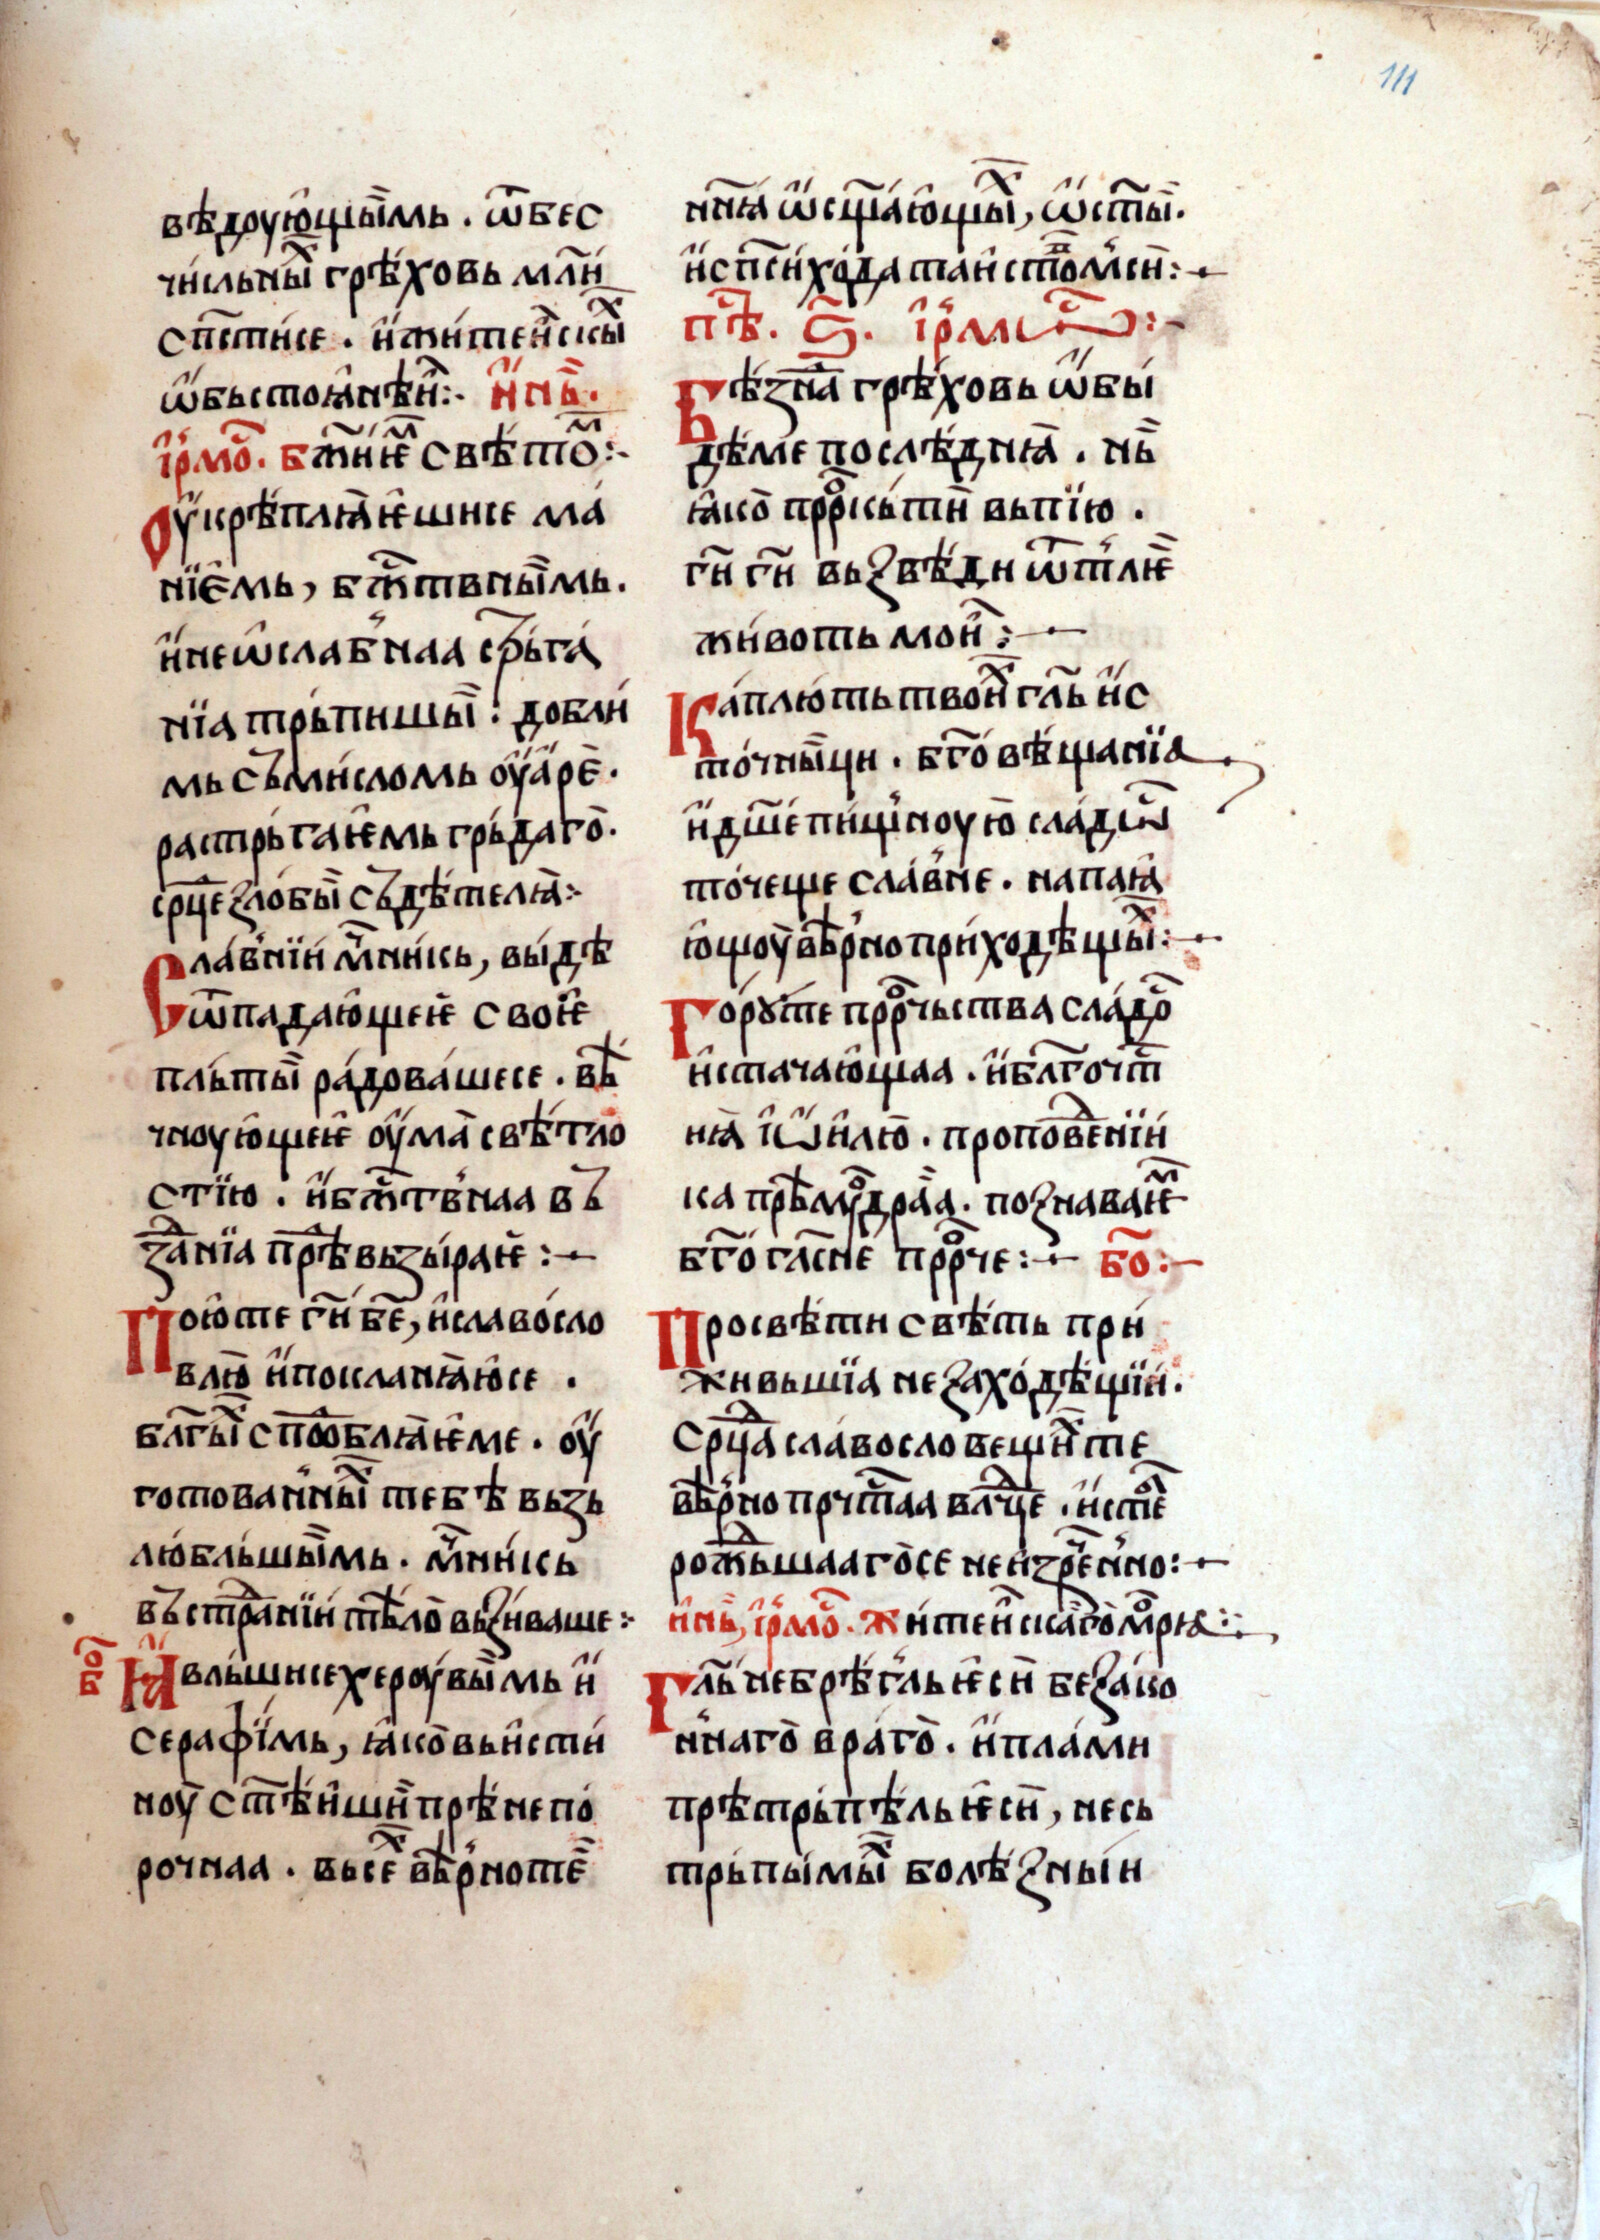 111
вѣдоую̑щы̏мь . ѿбес
чи́сльны̏х грѣ́ховь мл҃и́
сп҃сти́се . и҆жите́искы̏х
ѡ҆бьстоꙗ́нѣи҆ :· и҆нь̏ ·
і҆рмо̑с . бж҃нїѥ̑м свѣ́томь :·
Оу҆крѣплꙗ́ѥшисе ма́
нїе́мь , бж҃ⷭ҇твны̏мь .
и҆неѡ҆слаб̾наа сьр̾га́
нїа трьпишы̏ : добли́
мь съми́сломь оу҆а́ре̏ ·
растрьга́ѥмь грьдаго̏ ·
ср҃це зло́бы̏ съдѣ́телꙗ̏ :·
Сла́внїи мⷱ҇ни́кь , вы́дѣ
ѿпадаю́щеѥ своѥ̏
пль́ты̏ ра́дова́шесе . вѣ́
чноую́щеѥ оу҆ма̏ свѣ́тло
стїю . и҆бж҃ⷭ҇тв̾наа въ
зⷣа́нїа прѣⷣвьзы́раѥ :·—
Пою́те гн҃и бж҃е , и҆славо́сло
влю̏ и҆покланꙗ́юсе .
бл҃гы̏х сподоблꙗ́ѥме . оу҆
готова́н̾ны̏х тебѣ вьзь
лю́бльшы̏мь . мⷱ҇ни́кь
въстрⷣанїи тѣ́ло̏ вьзи́ваше :·
бо̑г Ꙗ҆вльшисехероувы̏мь и҆
серафі́мь , ꙗ҆ко̏ вьи́сти
ноу̏ ст҃ѣ́иши̏ прѣ́непо́
рочнаа . вьсе̏х вѣ́р̾ноте̏
нн҃їꙗ ѡ҆сщ҃а́ю̑щы̏х , ѡ҆ст҃ы̏ .
и҆сп҃си́хода́таи́ство̑мси̏ :·—
пѣ̑с . ѕ҃ . і҆рмѡ̑с :·—
Бѣ́зⷣна грѣ́ховь ѡ҆бы́
дѣ́ме послѣ́днꙗꙗ . нь̏
ꙗ҆ко̏ пррⷪ҇кьти̏ вьпїю .
гн҃и гн҃и вьзвѣ́ди ѿт̾лѥ̏
жи́воть мои̏ :·—
Ка́плю́ть твои̏х гл҃ь и҆с
то́чны̏ци . бг҃о́вѣща́нїа
и҆дш҃е́пи́щ̾ноую̏ сла́дѡⷭ҇
то́чеще сла́в̾не . напаꙗ́
ю́щоу̏ вѣ́р̾но при́ходѣщы̏х :·—
Го́рꙋте прⷪ҇ро́чьства сла́доⷭ҇
и҆стача́ю̑щаа . и҆бл҃гочⷭ҇т
нꙗ̏ і҆ѡ҆илю̏ . проповⷣенїи́
ка прѣмⷪуⷣдра̏а . познава́ѥм
бг҃о́гл҃сне́ пррⷪ҇че :·— бо̑ :·—
Просвѣ́ти свѣ́ть при́
жи́вьшїа неза́хо́дѣщїи .
Срⷣца сла́вословещи̏х те
вѣ́р̾но прчⷭ҇таа влⷣце . и҆с тебѣ
рожⷣьшааго̏се неи́зрⷱ҇ен̾но :·—
и҆нь̏ , і҆рмо̑с . Жи́те́искаго̏ мⷪрꙗ :·
Гл҃ь не брѣ́г̾ль ѥ҆си̏ беза́ко
н̾наго̏ вра́го̏ . и҆пла́ми
прѣ́трьпѣ́ль ѥ҆си̏ , несь
трьпы́мы̏х болѣ́зны́и